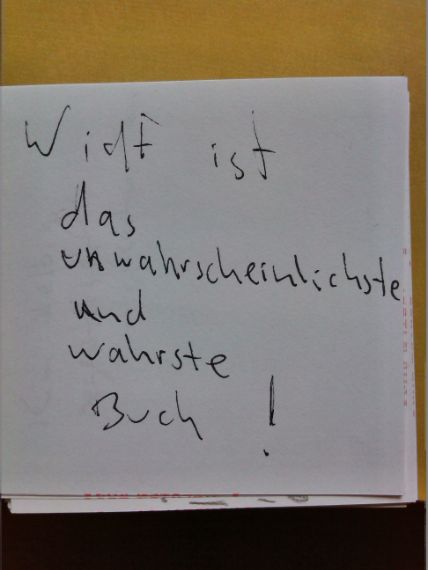 Widt ist
das
unwahrscheinlichste
und
wahrste
Buch !